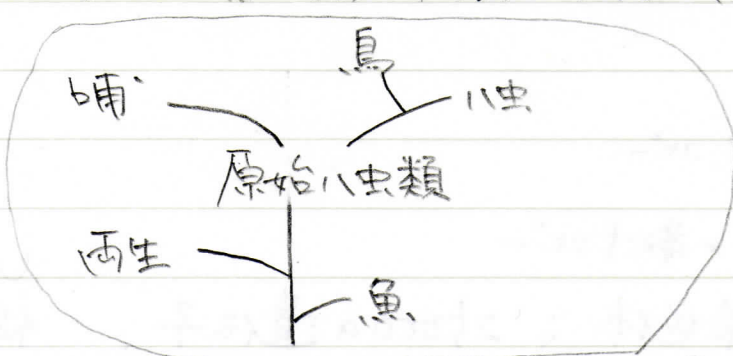 鳥
哺 ハ虫
原始ハ虫類
両生
魚